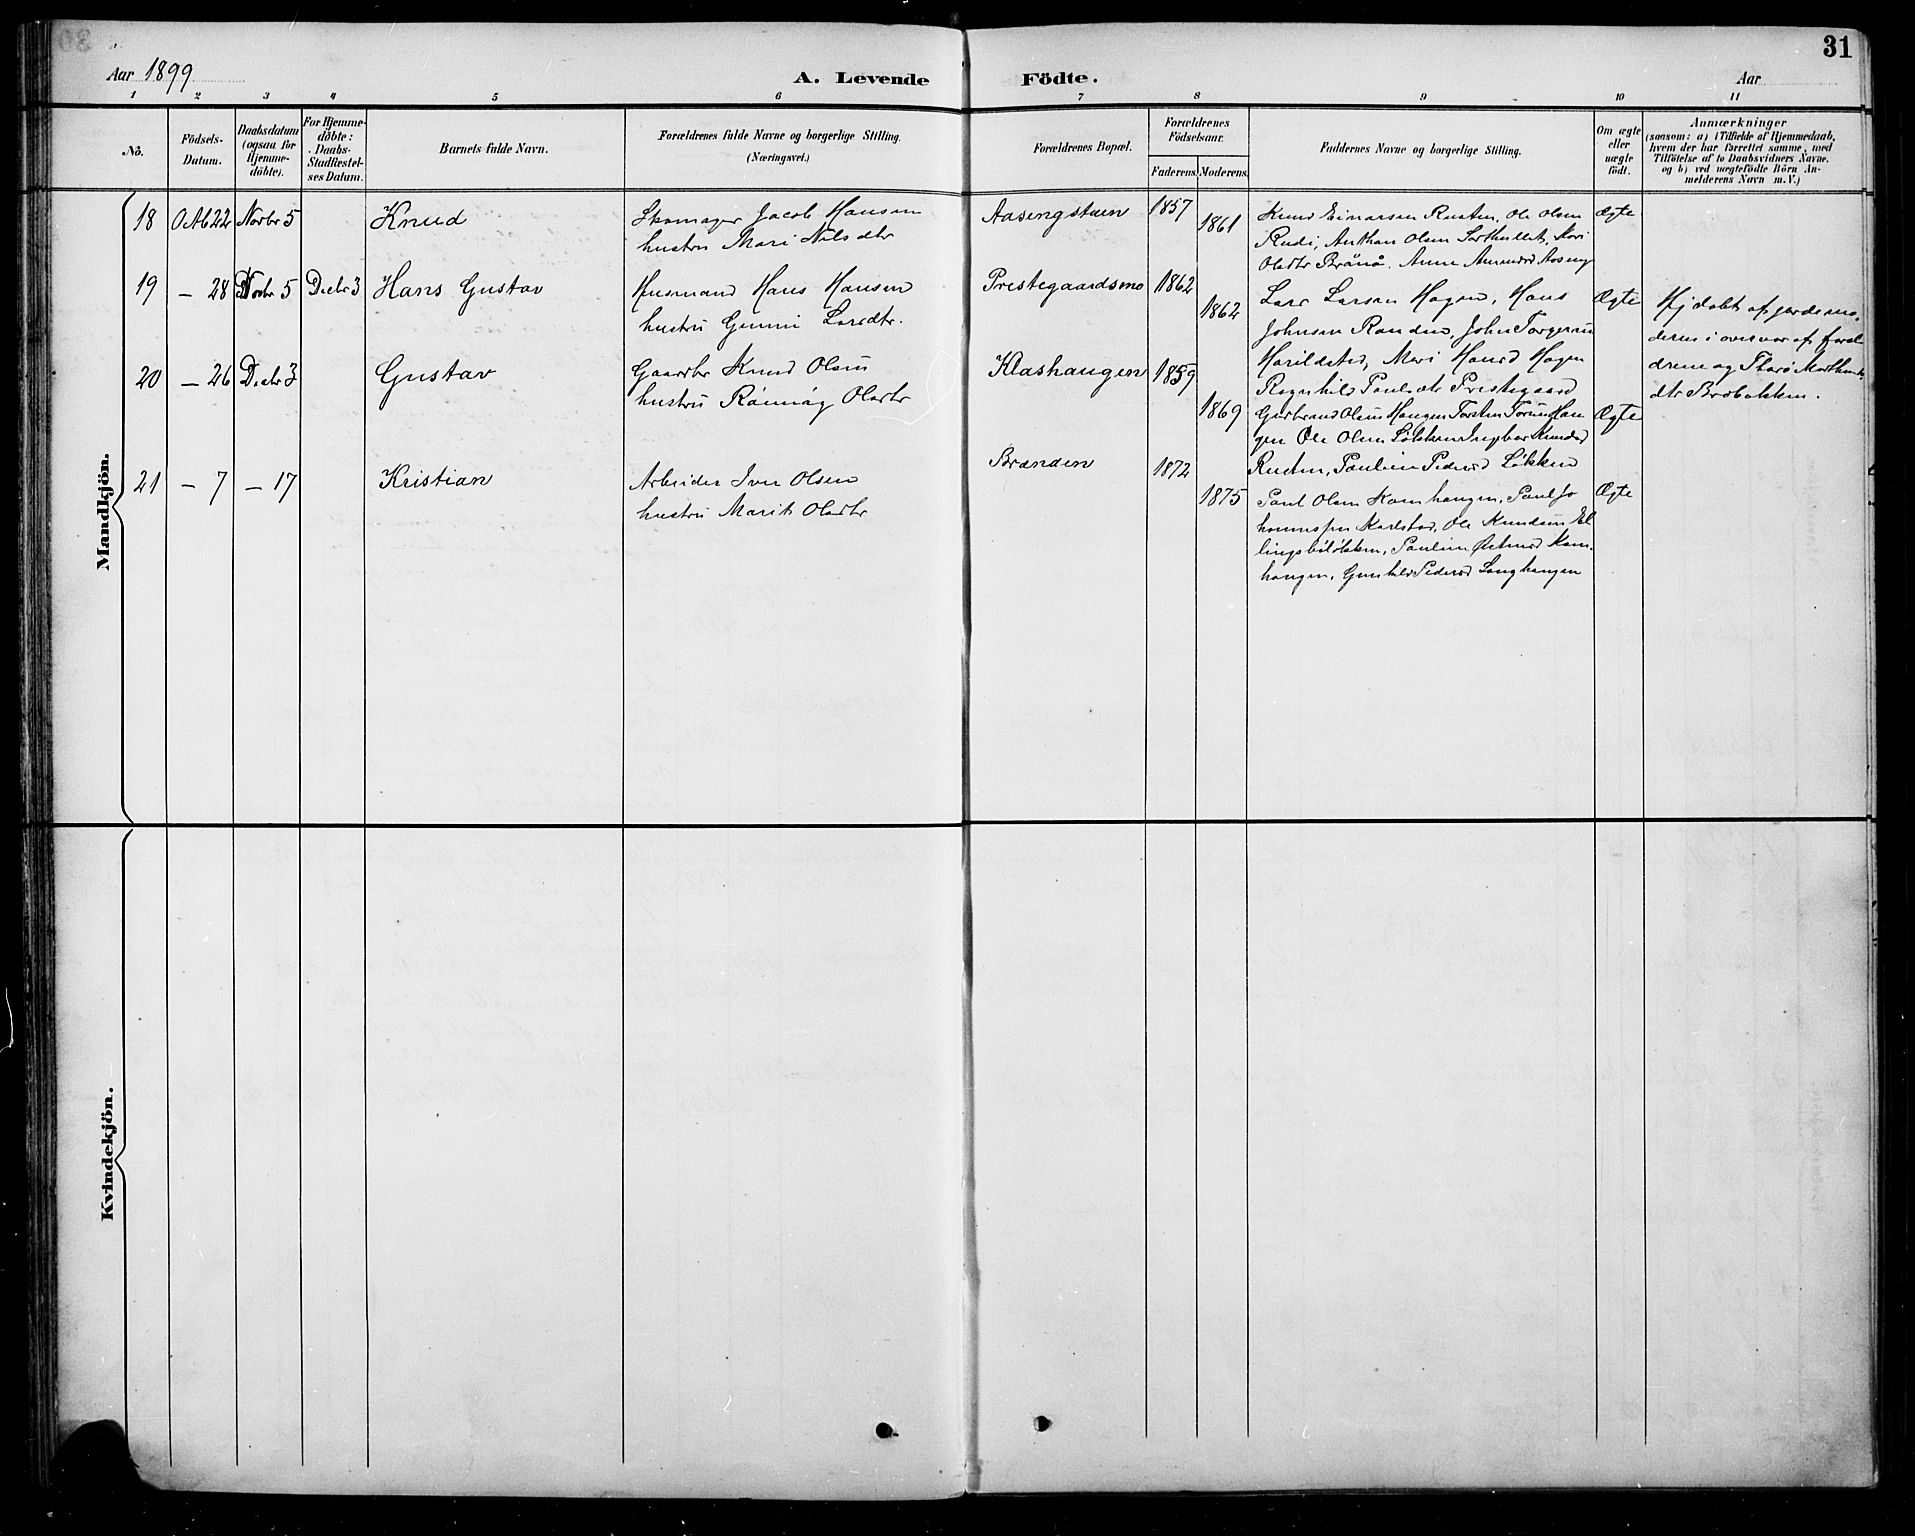 31
Aar 1899
A. Levende Födte.
Aar
1 2 3 4 5 6 7 8 9 10 11
No.
Födsels-
Datum.
Daabsdatum
(ogsaa for
Hjemme-
döbte).
For Hjemme-
döbte:
Daabs-
Stadfæstel-
ses Datum.
Barnets fulde Navn.
Forældrenes fulde Navne og borgerlige Stilling.
(Næringsvei.)
Forældrenes Bopæl.
Forældrenes
Födselsaar.
Faderens. Moderens.
Faddernes Navne og borgerlige Stilling.
Om ægte
eller
uægte
födt.
Anmærkninger
(saasom: a) i Tilfælde af Hjemmedaab,
hvem der har forrettet samme, med
Tilföielse af to Daabsvidners Navne,
og b) ved uægtefödte Börn An-
melderens Navn m. V.)
Mandkjön.
18 Okt 22 Novbr 5 Knud
Skomager Jacob Hansen
hustru Mari Nilsdtr
Aasengstuen 1857 1861
Knud Einarsen Rusten, Ole Olsen
Rudi, Anthon Olsen
Olsdtr Brånå. Anne Aaseng
Ægte
19 — 28 Novbr 5 Decbr 3 Hans Gustav
Husmand Hans Hansen
hustru Gunni Larsdtr.
Prestegaardsmo 1862 1862
Lars Larsen Hagen, Hans
Johnsen Randen, John Torgersen
Harildstad, Mari Hansd Hagen
Ragnhild Paulsdtr Prestegaard
Ægte
Hj döbt af jordemo-
deren i overvær af foræl-
drene og Thore
dtr Brobakken.
20 — 26 Decbr 3 Gustav
Gaardbr Knud Olsen
hustru Rønnøg Olsdtr
Klashaugen 1859 1869
Gudbrand Olsen Haugen Torsten Hau
gen Ole Olsen Løkken Knudsd
Rusten, Pauline Pedersd Løkken
Ægte
21 — 7 — 17 Kristian
Arbeider Iver Olsen
hustru Marit Olsdtr
Brænden 1872 1875
Paul Olsen Kamhaugen, Paul Jo
hannessen Karlstad, Ole Knudsen El
lingsbøløkken, Pauline Østensd Kam
haugen, Gunhild Pedersd Langhaugen
Ægte
Kvindekjön.